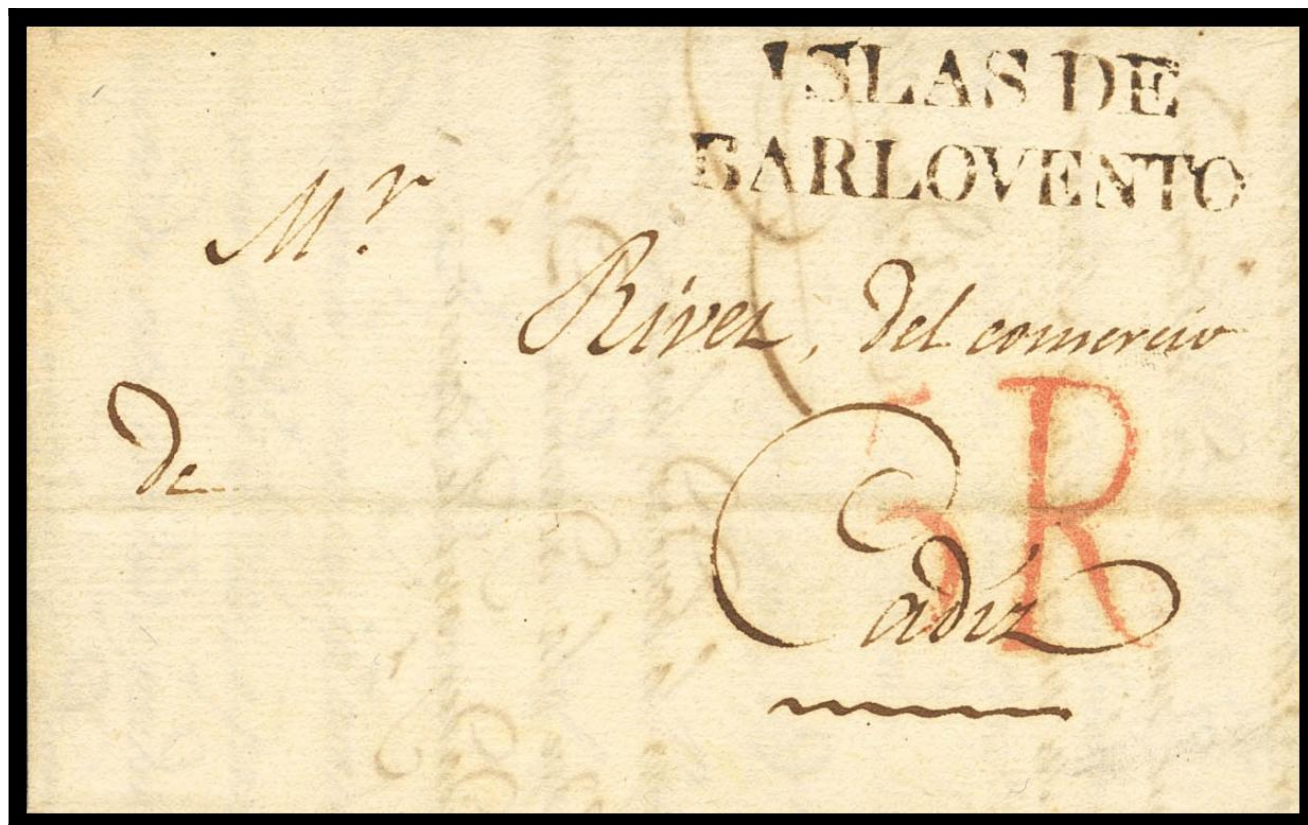 ISLAS DE
BARLOVENTO
Mr.
Rivez, del comercio
5 R
de
Cadiz